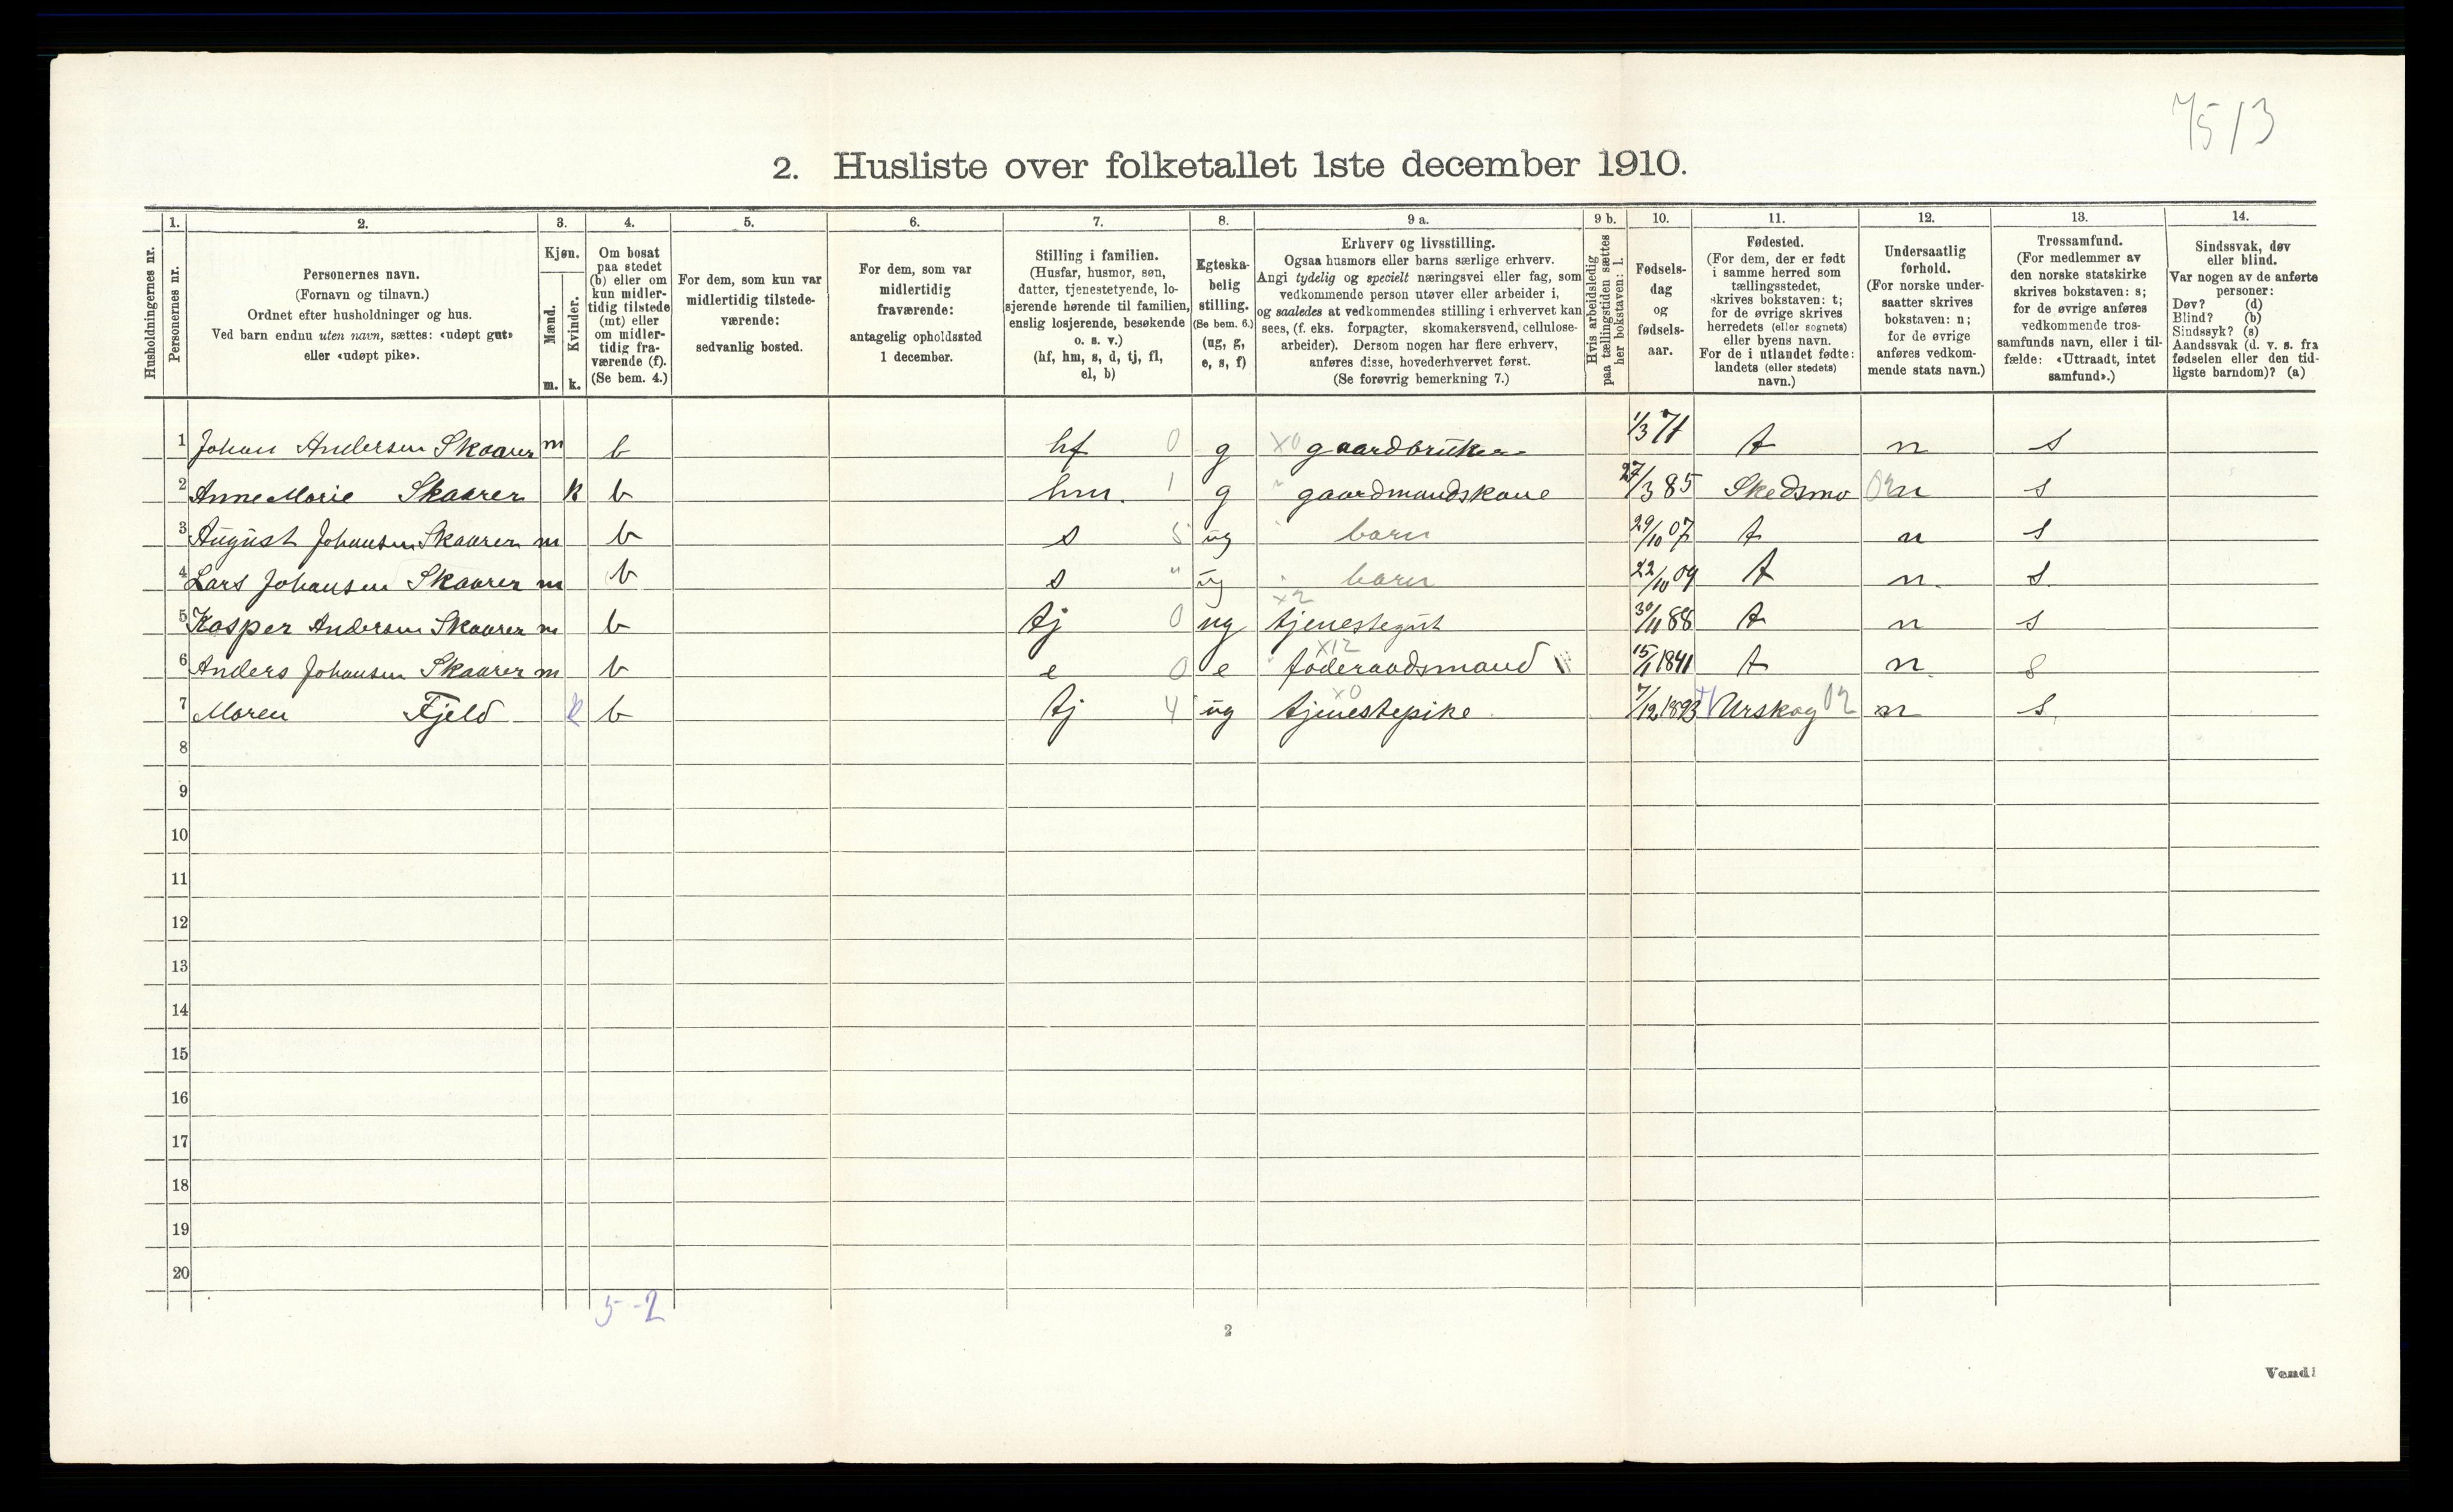 75/3
2. Husliste over folketallet 1ste december 1910.
1. 2. 3. 4. 5. 6. 7. 8. 9 a. 9 b. 10. 11. 12. 13. 14.
Husholdningernes nr.
Personernes nr.
Personernes navn.
(Fornavn og tilnavn.)
Ordnet efter husholdninger og hus.
Ved barn endnu uten navn, sættes: «udøpt gut»
eller «udøpt pike».
Kjøn.
Mænd.
Kvinder.
m. k.
Om bosat
paa stedet
(b) eller om
kun midler-
tidig tilstede
(mt) eller
om midler-
tidig fra-
værende (f).
(Se bem. 4.)
For dem, som kun var
midlertidig tilstede-
værende:
sedvanlig bosted.
For dem, som var
midlertidig
fraværende:
antagelig opholdssted
1 december.
Stilling i familien.
(Husfar, husmor, søn,
datter, tjenestetyende, lo-
sjerende hørende til familien,
enslig losjerende, besøkende
o. s. v.)
(hf, hm, s, d, tj, fl,
el, b)
Egteska-
belig
stilling.
(Se bem. 6.)
(ug, g,
e, s, f)
Erhverv og livsstilling.
Ogsaa husmors eller barns særlige erhverv.
Angi tydelig og specielt næringsvei eller fag, som
vedkommende person utøver eller arbeider i,
og saaledes at vedkommendes stilling i erhvervet kan
sees, (f. eks. forpagter, skomakersvend, cellulose-
arbeider). Dersom nogen har flere erhverv,
anføres disse, hovederhvervet først.
(Se forøvrig bemerkning 7.)
Hvis arbeidsledig
paa tællingstiden sættes
her bokstaven: l.
Fødsels-
dag
og
fødsels-
aar.
Fødested.
(For dem, der er født
i samme herred som
tællingsstedet,
skrives bokstaven: t;
for de øvrige skrives
herredets (eller sognets)
eller byens navn.
For de i utlandet fødte:
landets (eller stedets)
navn.)
Undersaatlig
forhold.
(For norske under-
saatter skrives
bokstaven: n;
for de øvrige
anføres vedkom-
mende stats navn.)
Trossamfund.
(For medlemmer av
den norske statskirke
skrives bokstaven: s;
for de øvrige anføres
vedkommende tros-
samfunds navn, eller i til-
fælde: «Uttraadt, intet
samfund».)
Sindssvak, døv
eller blind.
Var nogen av de anførte
personer:
Døv? (d)
Blind? (b)
Sindssyk? (s)
Aandssvak (d. v. s. fra
fødselen eller den tid-
ligste barndom)? (a)
1 Johan Andersen Skaarer m b hf 0 g X0 gaardbruker 1/3 71 t n s
2 Anne Marie Skaarer k b hm. 1 g gaardmandskone 27/3 85 Skedsmo 02 n s
3 August Johansen Skaarer m b s 5 ug barn 29/10 07 t n s
4 Lars Johansen Skaarer m b s " ug barn 22/10 09 t n. s.
5 Kasper Andersen Skaarer m b tj 0 ug x2 tjenestegut 30/11 88 t n s
6 Anders Johansen Skaarer m b e 0 e x12 føderaadsmand 15/1 1841 t n. s
7 Maren Fjeld k b tj 4 ug x0 tjenestepike 7/12 1893 Urskog 02 n s.
8
9
10
11
12
13
14
15
16
17
18
19
20
5-2
2
Vend!